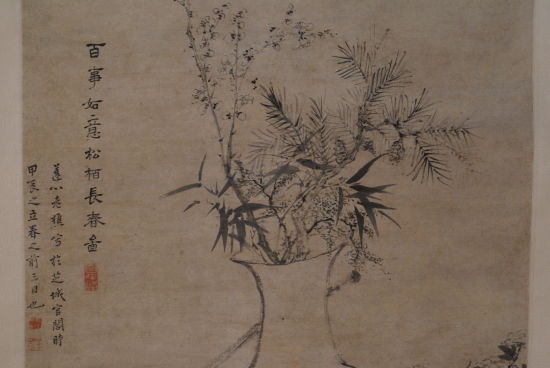 百事如意松柏長春圖
蓬心老樵寫於芝城官閣時
甲辰之立春之前三日也